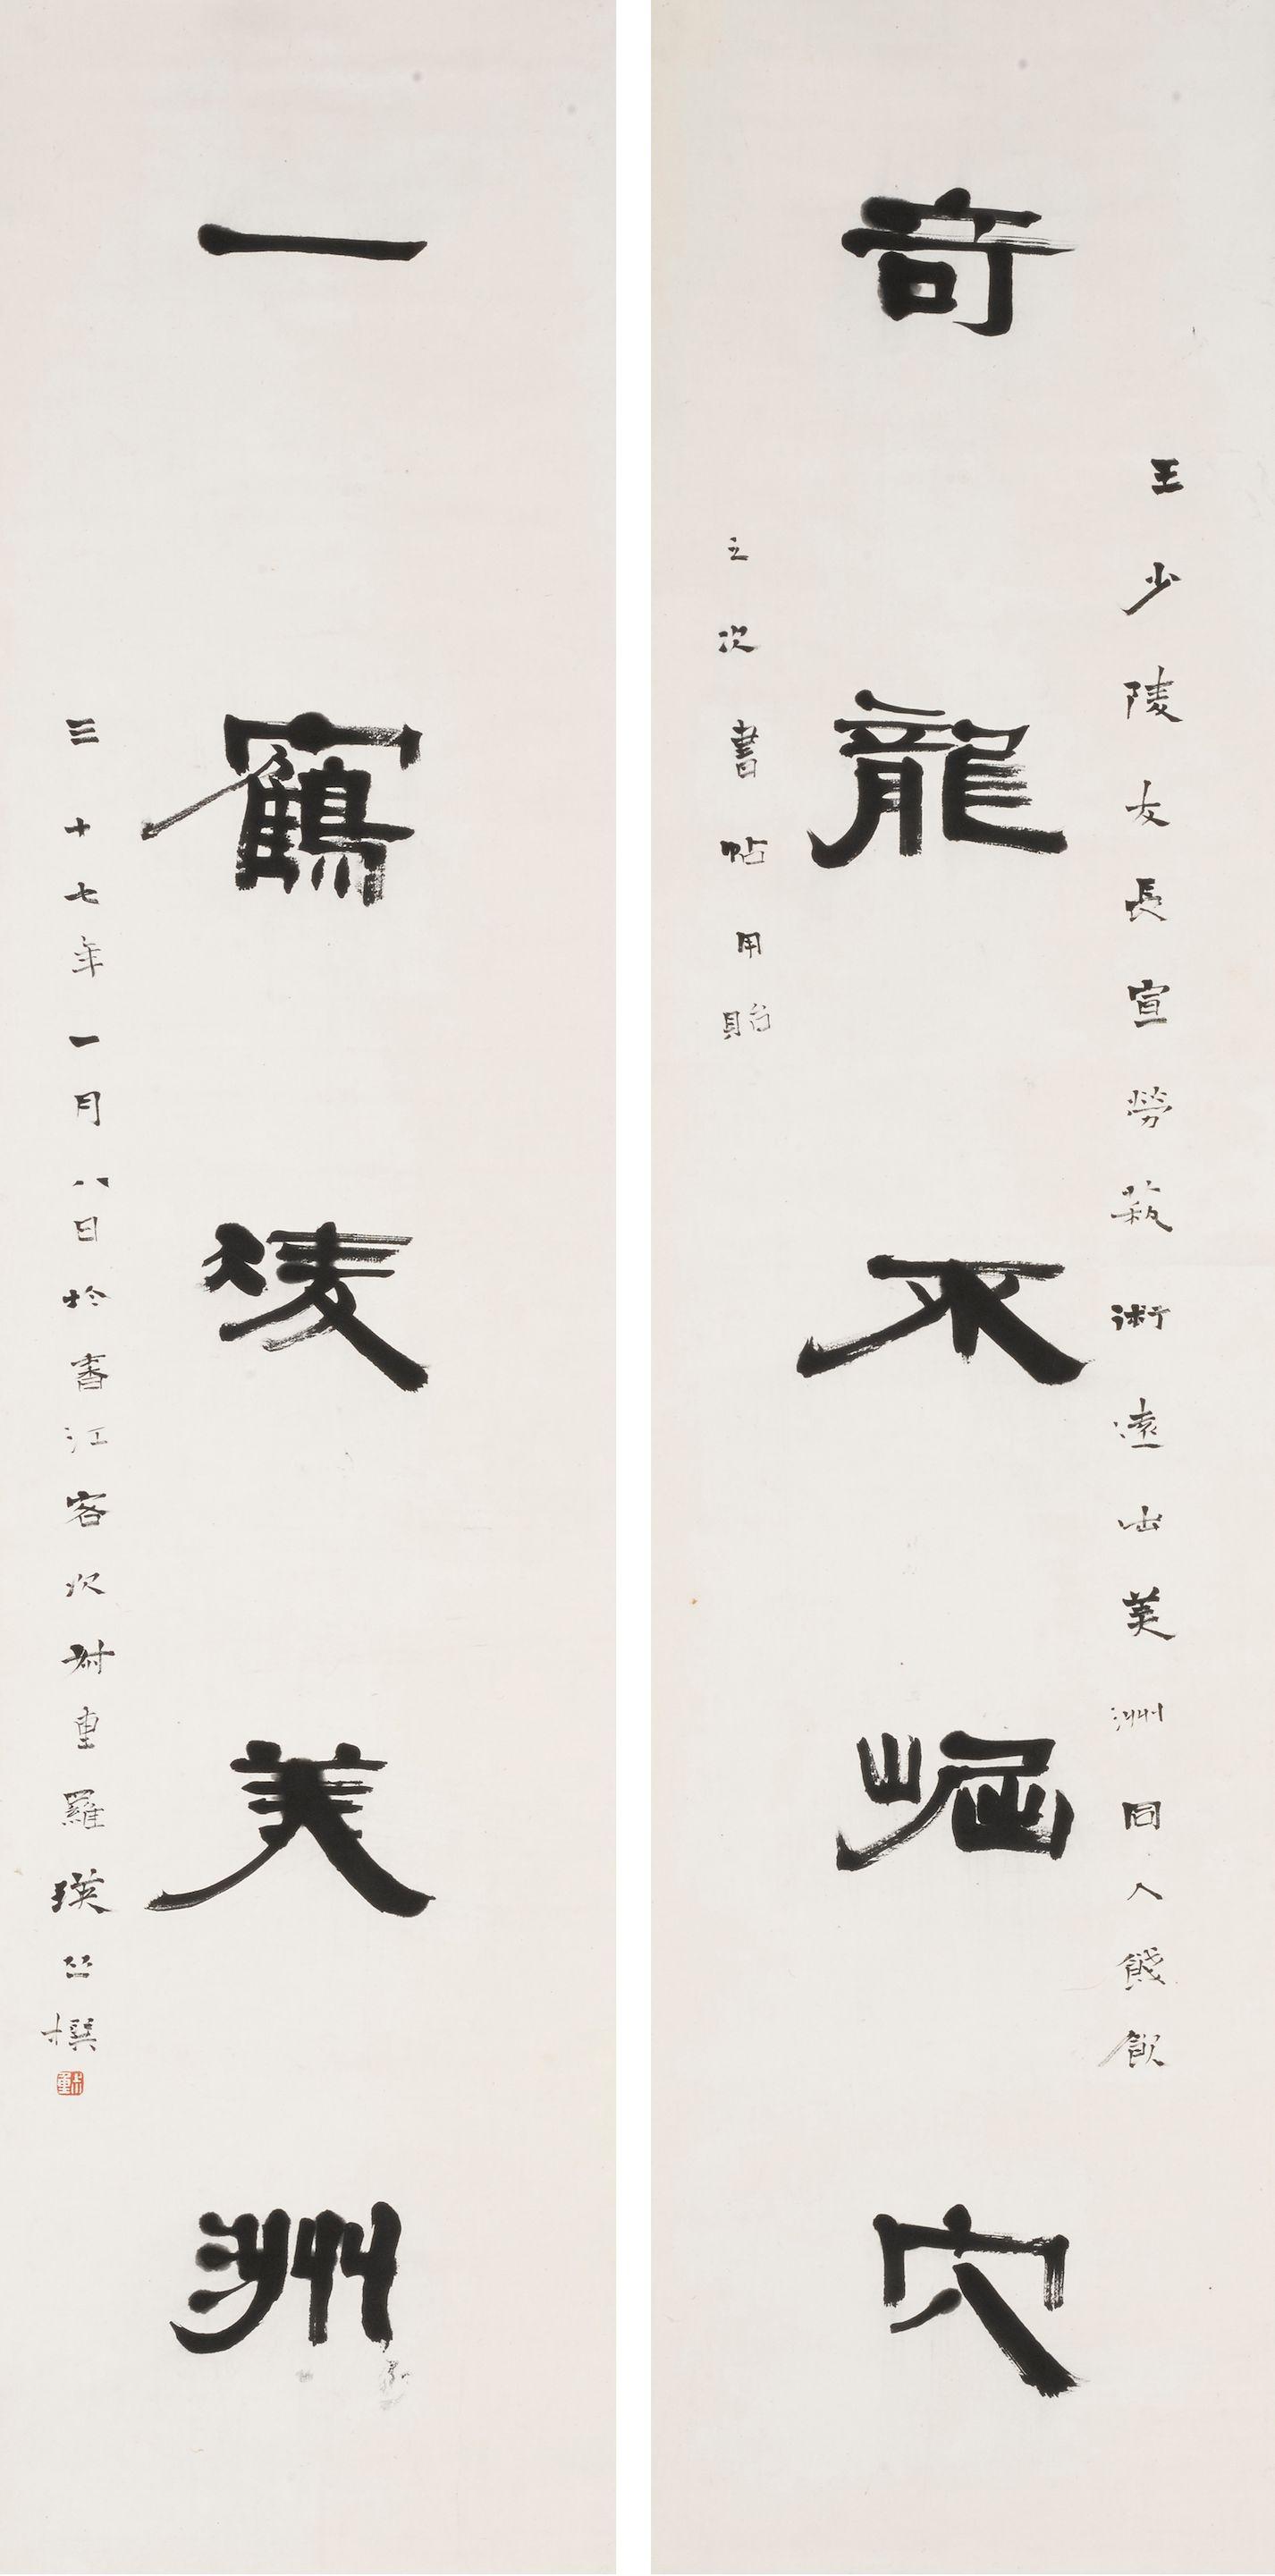 王少陵友長宣勞萟術遠出美洲同人餞飲
奇龍不崛穴
之次書帖用貽
一鶴凌美洲
三十七年一月八日於香江客次叔重羅瑛並撰
叔重